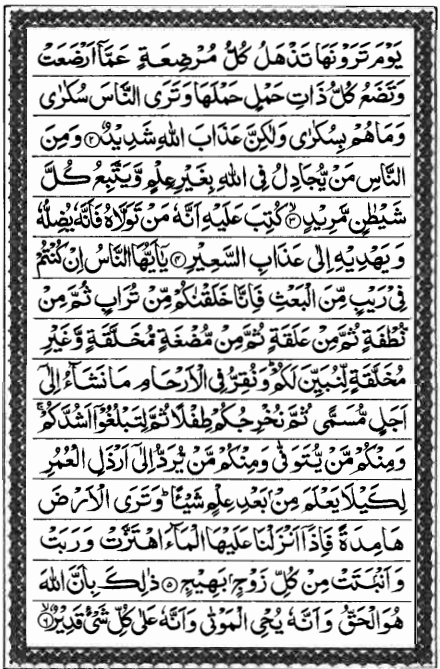 يَوْمَ تَرَوْنَهَا تَذْهَلُ كُلُّ مُرْضِعَةٍ عَمَّآ اَرْضَعَتْ
وَتَضَعُ كُلُّ ذَاتِ حَمْلٍ حَمْلَهَا وَتَرَى النَّاسَ سُكٰرٰى
وَمَا هُمْ بِسُكٰرٰى وَلٰكِنَّ عَذَابَ اللهِ شَدِيْدٌ ۝٢ وَمِنَ
النَّاسِ مَنْ يُّجَادِلُ فِى اللهِ بِغَيْرِ عِلْمٍ وَّيَتَّبِعُ كُلَّ
شَيْطٰنٍ مَّرِيْدٍ ۝٣ كُتِبَ عَلَيْهِ اَنَّهٗ مَنْ تَوَلَّاهُ فَاَنَّهٗ يُضِلُّهٗ
وَيَهْدِيْهِ اِلٰى عَذَابِ السَّعِيْرِ ۝٤ يٰۤاَيُّهَا النَّاسُ اِنْ كُنْتُمْ
فِىْ رَيْبٍ مِّنَ الْبَعْثِ فَاِنَّا خَلَقْنٰكُمْ مِّنْ تُرَابٍ ثُمَّ مِنْ
نُّطْفَةٍ ثُمَّ مِنْ عَلَقَةٍ ثُمَّ مِنْ مُّضْغَةٍ مُّخَلَّقَةٍ وَّغَيْرِ
مُخَلَّقَةٍ لِّنُبَيِّنَ لَكُمْ ؕ وَنُقِرُّ فِى الْاَرْحَامِ مَا نَشَآءُ اِلٰٓى
اَجَلٍ مُّسَمًّى ثُمَّ نُخْرِجُكُمْ طِفْلًا ثُمَّ لِتَبْلُغُوْۤا اَشُدَّكُمْ ۚ
وَمِنْكُمْ مَّنْ يُّتَوَفّٰى وَمِنْكُمْ مَّنْ يُّرَدُّ اِلٰٓى اَرْذَلِ الْعُمُرِ
لِكَيْلَا يَعْلَمَ مِنْۢ بَعْدِ عِلْمٍ شَيْئًا ؕ وَتَرَى الْاَرْضَ
هَامِدَةً فَاِذَاۤ اَنْزَلْنَا عَلَيْهَا الْمَآءَ اهْتَزَّتْ وَرَبَتْ
وَاَنْۢبَتَتْ مِنْ كُلِّ زَوْجٍۢ بَهِيْجٍ ۝٥ ذٰلِكَ بِاَنَّ اللهَ
هُوَ الْحَقُّ وَاَنَّهٗ يُحْىِ الْمَوْتٰى وَاَنَّهٗ عَلٰى كُلِّ شَىْءٍ قَدِيْرٌ ۝٦ۙ